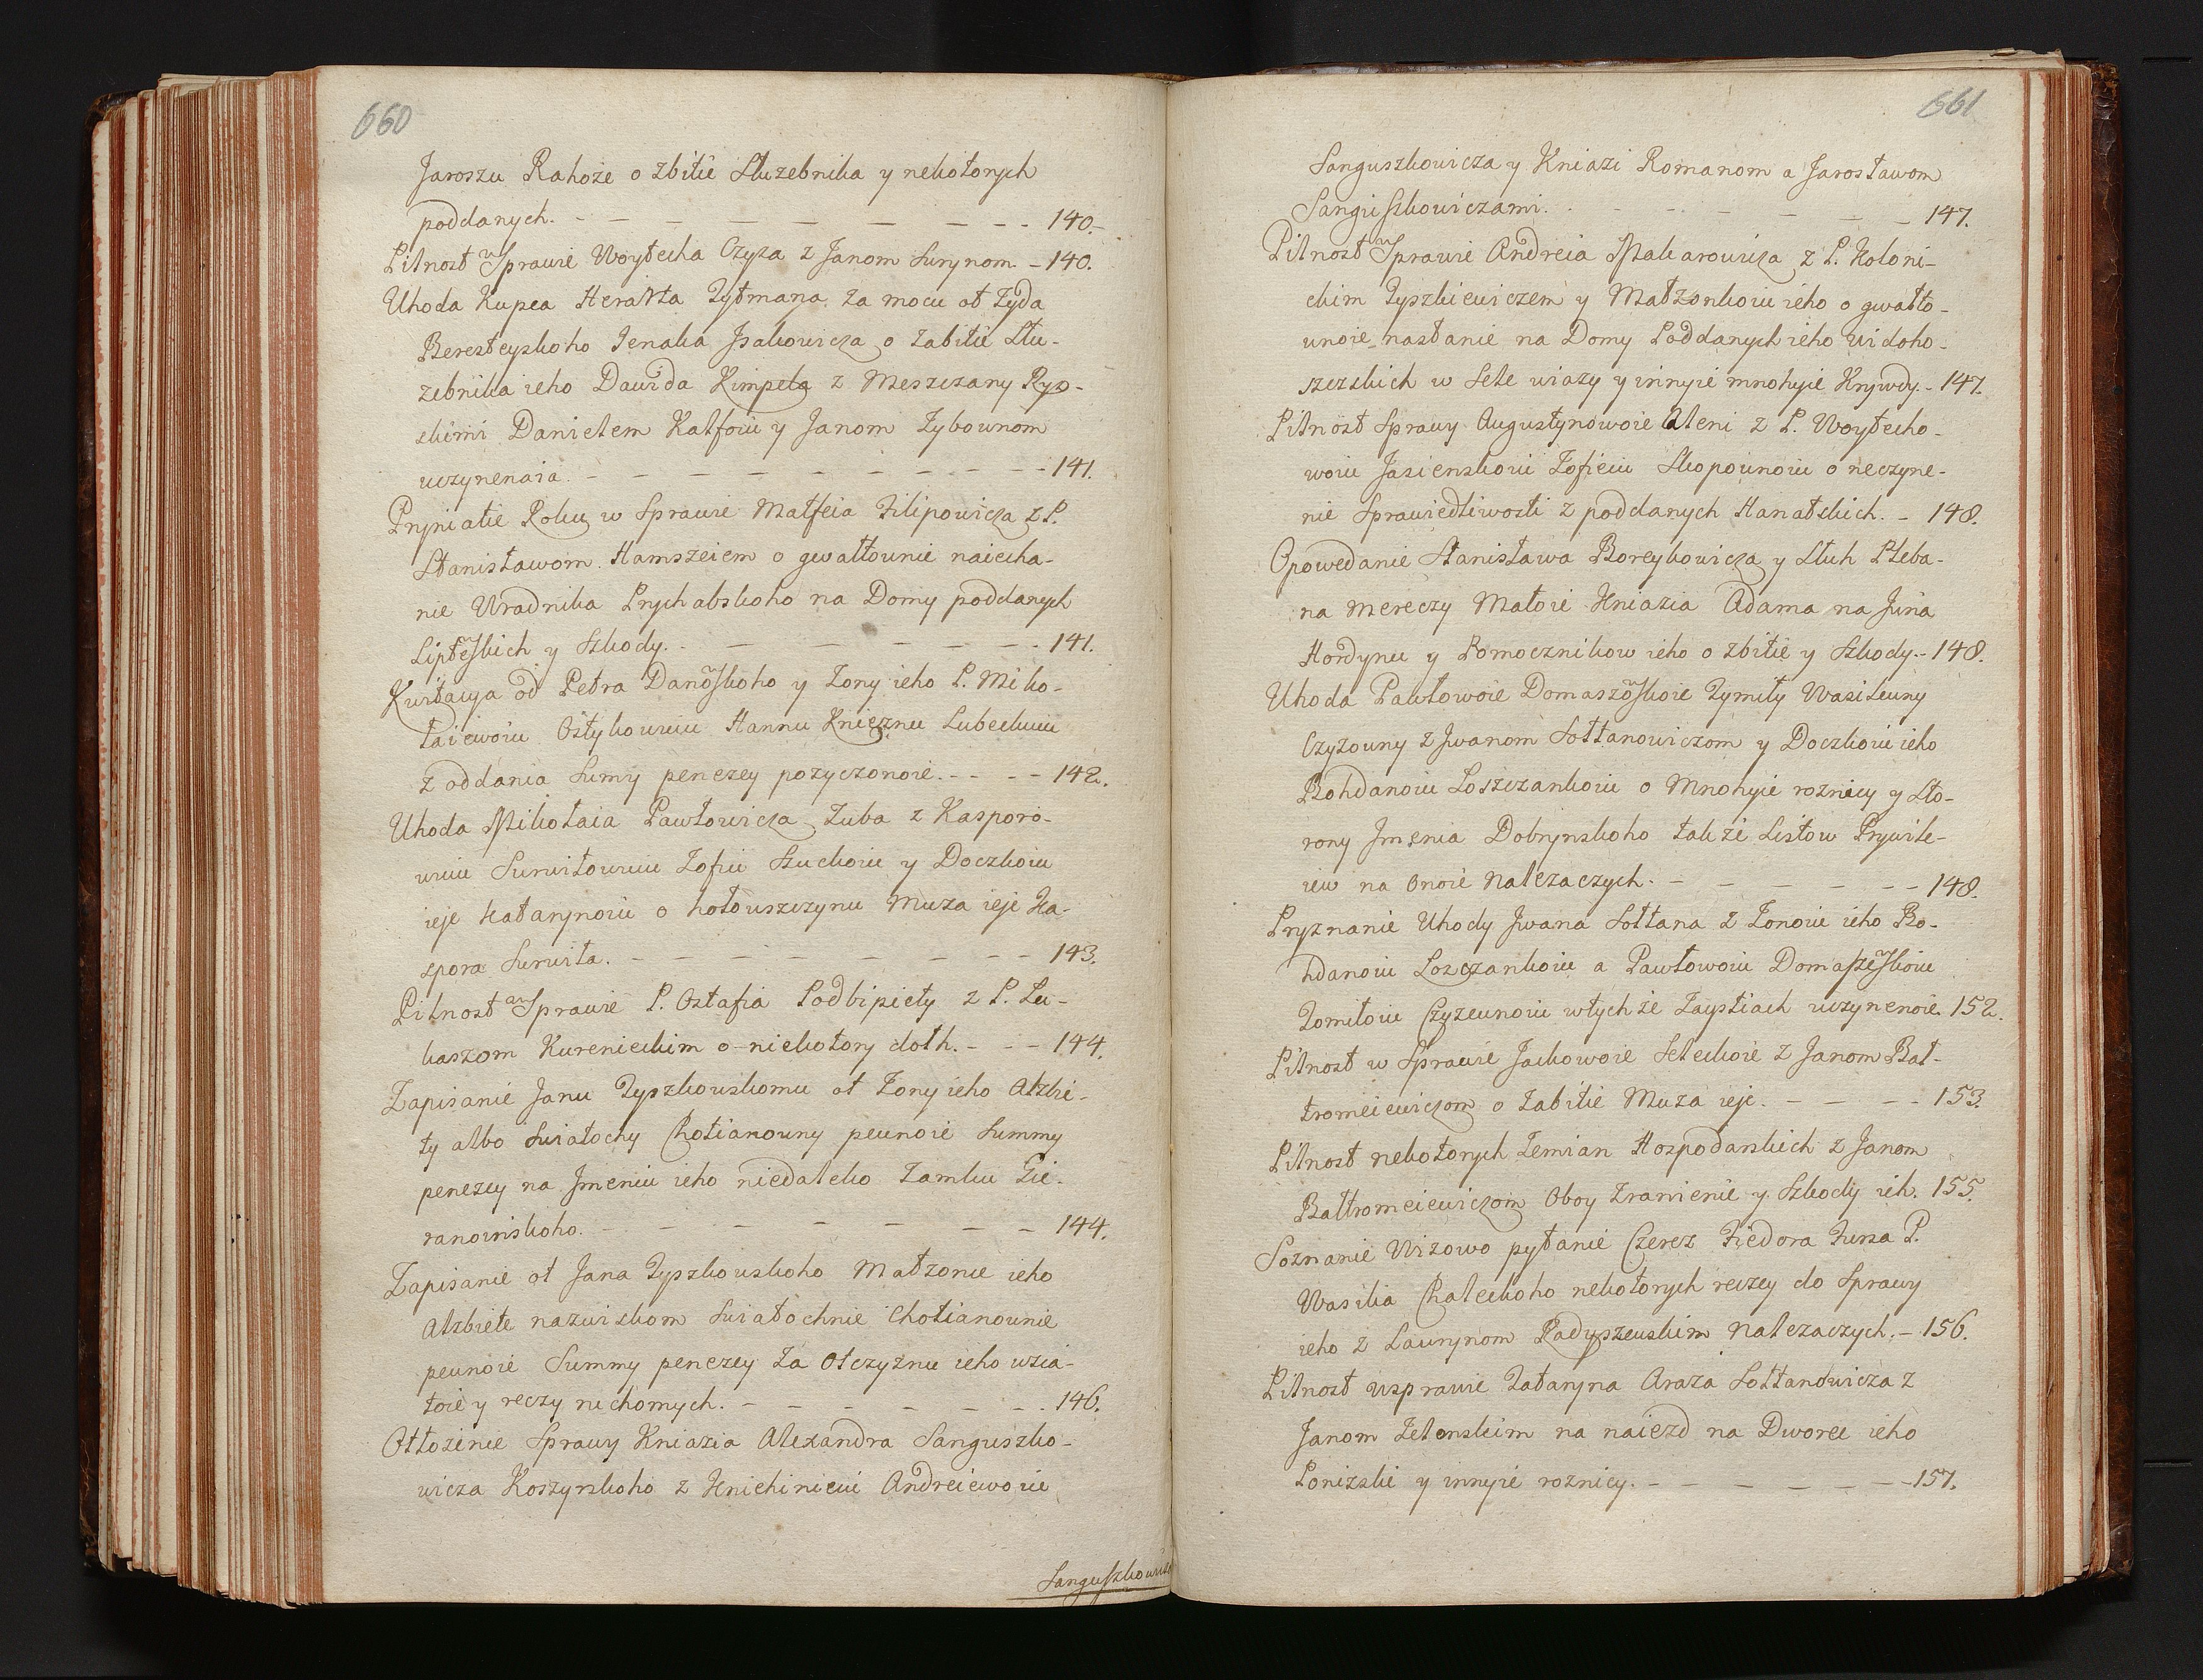 660
Jaroszu Rahoże o zbitie Służebnika y nekotorych
poddanych. - - - - - - - - 140.
Pilnost w Sprawie Woytecha Czyża z Janom Jurynom. - 140.
Uhoda Kupca Herarta Tytmana za mocu ot Żyda
Beresteyskoho Ienaka Jsakowicza o zabitie Słu-
żebnika ieho Dawida Kimpela z Meszczany Ryz-
skimi Danielem Kalfoiu y Janom Zybownom
uczynenaia. - - - - - - - - 141.
Pryniatie Roku w Sprawie Matfeia Filipowicza z P.
Stanisławom Hamszeiem o gwałtownie naiecha-
nie Uradnika Prychabskoho na Domy poddanych
Lipteskich y Szkody. - - - - - - 141.
Kwitacya od Petra Danoskoho y Żony ieho P. Miko-
łaiewoiu Ostykowuiu Hannu Knieżnu Lubeckuiu
z oddania Sumy penezey pozyczonoie. - - - - 142.
Uhoda Mikołaia Pawłowicza Zuba z Kasporo-
wuiu Surwiłowuiu Zofiu Szuckoiu y Doczkoiu
ieje Katarynoiu o hołowszczynu Muża ieje Ka-
spora Surwiła. - - - - - - - - 143.
Pilnost w Sprawie P. Ostafia Podbipięty z P. Łu-
kaszom Kurenieckim o niekotory dołh. - - - 144.
Zapisanie Janu Tyszkowskomu ot Żony ieho Alżbi-
ty albo Swiatochy Chotianowny pewnoie Summy
penezey na Jmeniu ieho niedaleko Zamku Gie-
ranoinskoho. - - - - - - - 144.
Zapisanie ot Jana Tyszkowskoho Małżonce ieho
Alzbiete nazwiskom Swiatochnie Chotianownie
pewnoie Summy penezey za Otczyznu ieho wzia-
toie y reczy ruchomych. - - - - - - 146.
Otłożenie Sprawy Kniazia Alexandra Sanguszko-
wicza Koszyrskoho z Kniehinieiu Andreiewoiu
Sanguszkowicza
661
Sanguszkowicza y Kniazi Romanom a Jarosławom
Sanguszkowiczami. - - - - - - 147.
Pilnost w Sprawie Andreia Makarowicza z P. Koloni-
ckim Tyszkiewiczem y Małżonkoiu ieho o gwałto-
wnoie nasłanie na Domy Poddanych ieho Widoho-
szczskich w Sele wiazy y innyie mnohyie Krywdy. - 147.
Pilnost Sprawy Augustynowoie Aleni z P. Woytecho-
woiu Jasienskoiu Zofieiu Skopownoiu o neczyne-
nie Sprawiedliwosti z poddanych Hanatskich. - 148.
Opowedanie Stanisława Boreykowicza y Słuh Pleba-
na Mereczy Małoie Kniazia Adama na Jura
Hordynu y Pomocznikow ieho o zbitie y Szkody. - 148.
Uhoda Pawłowoie Domaszoskoie Tymity Wasilewny
Czyzowny z Jwanom Sołtanowiczom y Doczkoiu ieho
Bohdanoiu Łoszczankoiu o Mnohyie roznicy y Sto-
rony Jmenia Dobrynskoho także Listow Prywile-
iew na Onoie Należaczych. - - - - - - 148.
Pryznanie Uhody Jwana Sołtana z Żonoiu ieho Bo-
hdanoiu Łozczankoiu a Pawłowoiu Domaszeskoiu
Tomiłoiu Czyżewnoiu wtychże Zaystiach uczynenoie. 152.
Pilnost w Sprawie Jackowoie Seleckoie z Janom Bał-
tromeiewiczom o Zabitie Muża ieje. - - - - 153.
Pilnost nekotorych Zemian Hospodarskich z Janom
Bałtromeiewiczom Oboy Zranienie y Szkody ich. 155.
Soznanie Wizowo pytanie Czerez Fiedora Tursa P.
Wasilia Chaleckoho nekotorych reczey do Sprawy
ieho z Lawrynom Radyszewskim Należaczych. - 156.
Pilnost wsprawie Tataryna Araza Sołtanowicza z
Janom Zelenskim na naiezd na Dworec ieho
Poniżskie y innyie roznicy. - - - - - - 157.